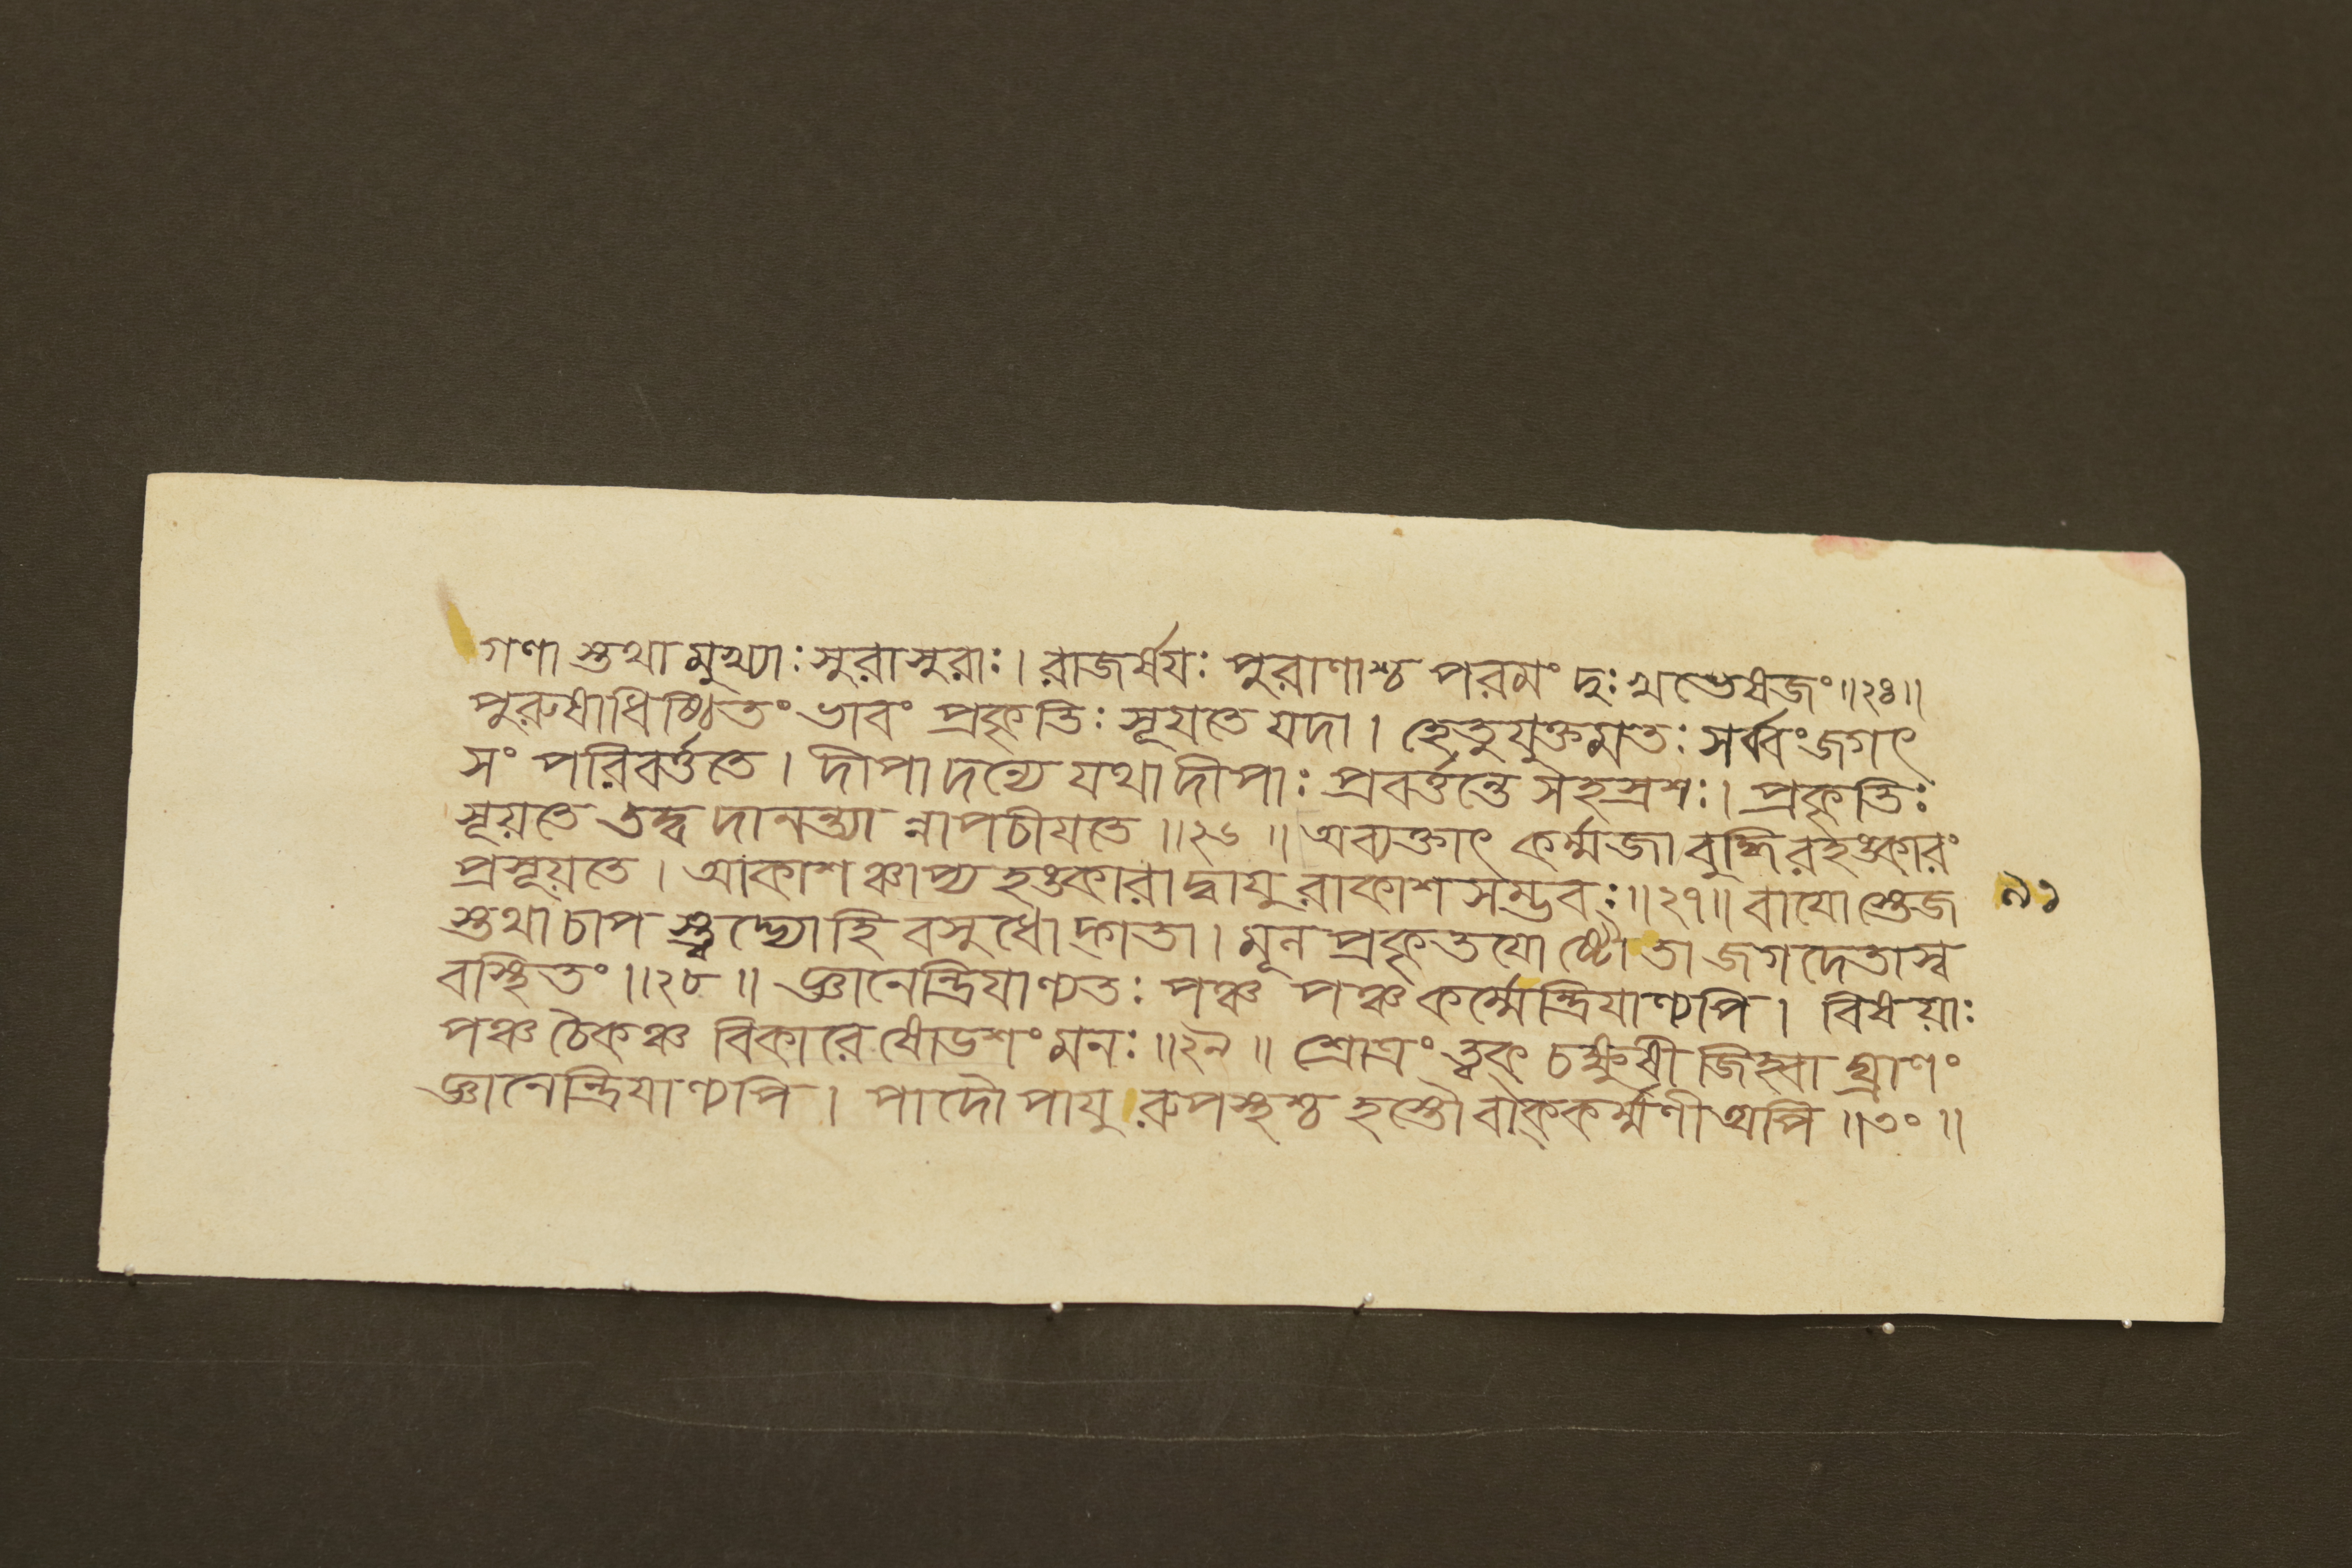 গণা স্তথা মুখ্যাঃ সুরাসুরাঃ। রাজর্ষযঃ পুরাণাশ্চ পরমং দুঃখভেষজং॥২৪॥
পুরুষাধিষ্ঠিতং ভাবং প্রকৃতিঃ সূযতে যদা। হেতুযুক্তমতঃ সর্ব্বং জগৎ
সং পরিবর্ত্ততে। দীপাদন্যে যথা দীপাঃ প্রবর্ত্তন্তে সহস্রশঃ। প্রকৃতিঃ
সূয়তে তদ্বদানন্ত্যা ন্নাপচীযতে॥২৬॥ অব্যক্তাৎ কর্ম্মজা বুদ্ধিরহঙ্কারং
প্রসূয়তে। আকাশঞ্চাপ্যহঙ্কারাদ্বাযুরাকাশসম্ভবঃ॥২৭॥ বাযোস্তেজ
৯১
স্তথা চাপ স্ত্বদ্ভ্যোহি বসুধোদ্গতা। মূলপ্রকৃতযোষ্টৌতা জগদেতাস্ব
বস্থিতং॥২৮॥ জ্ঞানেন্দ্রিযাণ্যতঃ পঞ্চ পঞ্চ কর্ম্মেন্দ্রিযাণ্যপি। বিষয়াঃ
পঞ্চ চৈকঞ্চ বিকারে ষোডশং মনঃ॥২৯॥ শ্রোত্রং ত্বক্ চক্ষুষী জিহ্বা ঘ্রাণং
জ্ঞানেন্দ্রিযাণ্যপি। পাদৌ পাযুরুপস্থশ্চ হস্তৌ বাক্কর্ম্মণী অপি॥৩০॥